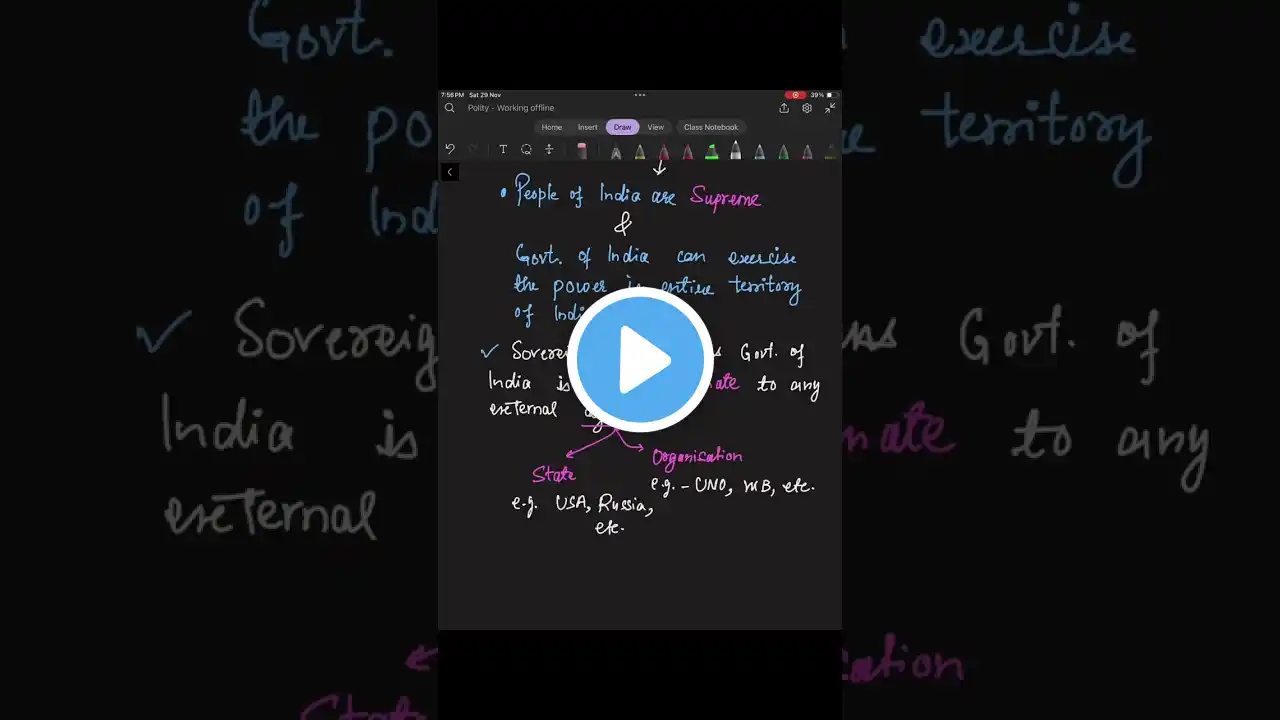 7:56 PM Sat 29 Nov
39%
Polity - Working offline
Home Insert Draw View Class Notebook
• People of India are Supreme
&
Govt. of India can exercise
the power in entire territory
of Indi
✓ Sovereig s Govt. of
India is nate to any
external
State
Organisation
e.g. - UNO, WB, etc.
e.g. USA, Russia,
etc.